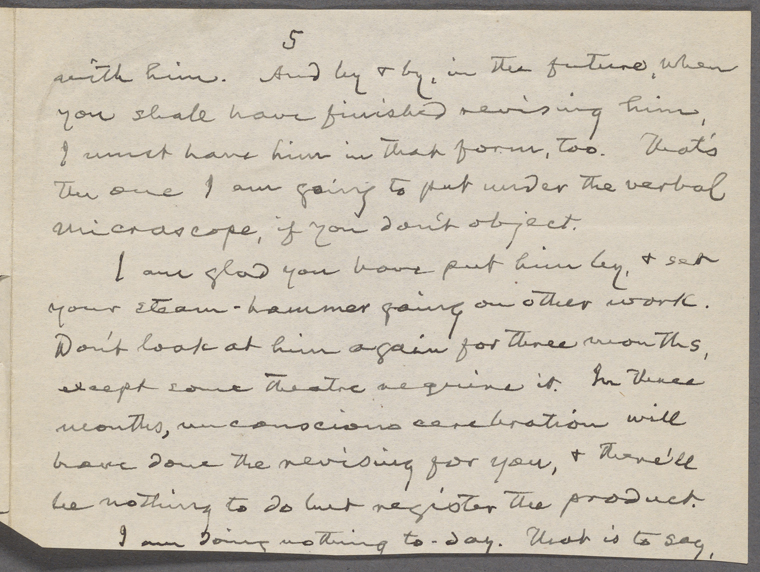 5
with him. And by & by, in the future, when
you shall have finished revising him,
I must have him in that form, too. That's
the one I am going to put under the verbal
microscope, if you don't object.
I am glad you have put him by, & set
your steam-hammer going on other work.
Don't look at him again for three months,
except some theatre require it. In three
months, unconscious cerebration will
have done the revising for you, & there'll
be nothing to do but register the product.
I am doing nothing to-day. That is to say,